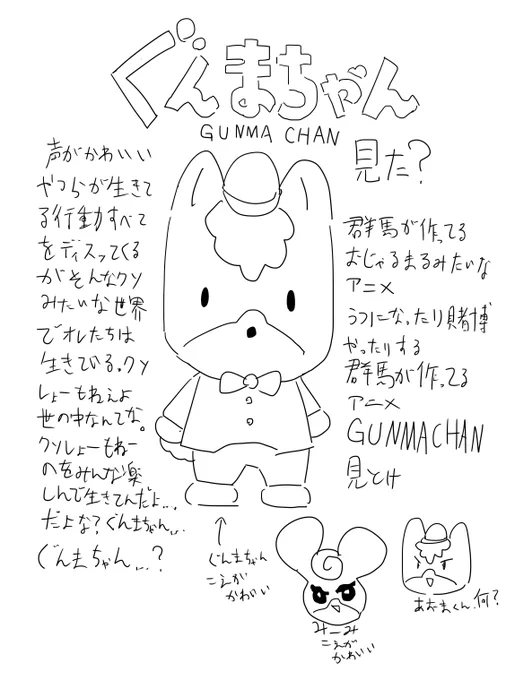 ぐんまちゃん
GUNMA CHAN
声がかわいい
やつらが生きて
る行動すべて
をディスってくる
がそんなクソ
みたいな世界
でオレたちは
生きている。クソ
しょーもねえよ
世の中なんてな。
クソしょーもねー
のをみんな楽
しんで生きてんだよ...
だよな?ぐんまちゃん...
ぐんまちゃん...?
見た?
群馬が作ってる
おじゃるまるみたいな
アニメ
うつになったり賭博
やったりする
群馬が作ってる
アニメ
GUNMACHAN
見とけ
↑
ぐんまちゃん
こえが
かわいい
みーみ
こえが
かわいい
あおまくん.何?